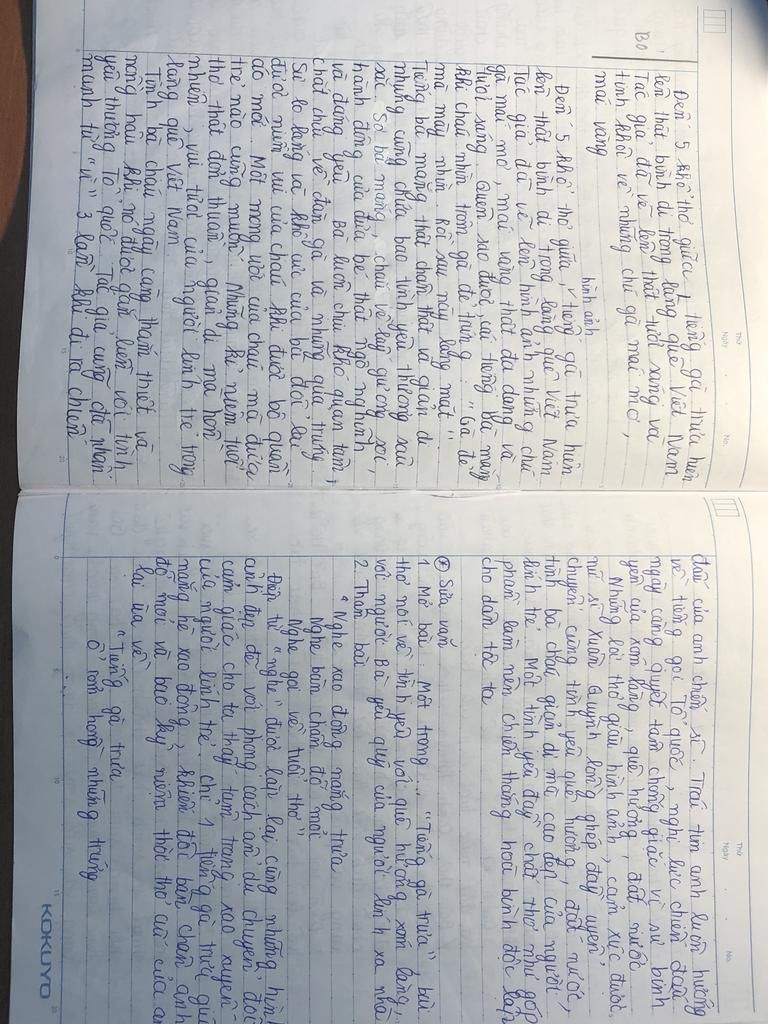 Thứ
Ngày . . No.
Đến 5 khổ thơ giữa, tiếng gà trưa hiện
lên thật bình dị trong làng quê Việt Nam.
Tác giả đã vẽ lên thật tươi sáng và
tinh khôi về những chú gà mái mơ,
mái vàng
Bỏ
hình ảnh
Đến 5 khổ thơ giữa, tiếng gà trưa hiện
lên thật bình dị trong làng quê Việt Nam
Tác giả đã vẽ lên hình ảnh những chú
gà mái mơ, mái vàng thật đa dạng và
tươi sáng. Quên sao được, cái tiếng Bà mắng
khi cháu nhìn trộm gà đẻ trứng: "Gà đẻ
mà mày nhìn. Rồi sau này lang mặt".
Tiếng bà mắng thật chân thật và giản dị
nhưng cũng chứa bao tình yêu thương sâu
xa. Sợ bà mắng, cháu về lấy gương soi,
hành động của đứa bé thật ngộ nghĩnh
và đáng yêu. Bà luôn chịu khó quan tâm,
chắt chiu về đàn gà và những quả trứng.
Sự lo lắng và khổ cực của bà đổi lại
dưới niềm vui của cháu khi được bộ quần
áo mới. Một mong ước của cháu mà đứa
trẻ nào cũng muốn. Những kỉ niệm tuổi
thơ thật đơn thuần, giản dị mà hồn
nhiên, vui tươi của người lính trẻ trong
làng quê Việt Nam.
Tình bà cháu ngày càng thắm thiết và
nồng hậu khi nó được gắn liền với tình
yêu thương Tổ quốc. Tác giả cũng đã nhấn
mạnh từ "vì" 3 lần khi đi ra chiến
Thứ
Ngày . . No.
đấu của anh chiến sĩ. Trái tim anh luôn hướng
về tiếng gọi Tổ quốc, nghị lực chiến đấu
ngày càng quyết tâm chống giặc vì sự bình
yên của xóm làng, quê hương, đất nước
Những lời thơ giàu hình ảnh, cảm xúc được
nữ sĩ Xuân Quỳnh lồng ghép đầy uyển
chuyển cùng tình yêu quê hương, đất nước,
tình bà cháu giản dị mà cao đẹp của người
lính trẻ. Một tình yêu đầy chất thơ như góp
phần làm nên chiến thắng hoà bình độc lập
cho dân tộc ta
* Sửa văn
1. Mở bài: Một trong ... "Tiếng gà trưa" bài
thơ nói về tình yêu với quê hương xóm làng,
với người Bà yêu quý của người lính xa nhà
2. Thân bài
"Nghe xao động nắng trưa
Nghe bàn chân đỡ mỏi
Nghe gọi về tuổi thơ"
Điệp từ "nghe" được lặp lại cùng những hình
ảnh đẹp đẽ với phong cách ẩn dụ chuyển đổi
cảm giác cho ta thấy tâm trạng xao xuyến
của người lính trẻ. Chỉ 1 tiếng gà trưa giữa
nắng hè xao động, khiến đôi bàn chân anh
đỡ mỏi và bao kỷ niệm thời thơ ấu của anh
lại ùa về
"Tiếng gà trưa
Ổ rơm hồng những trứng
KOKUYO